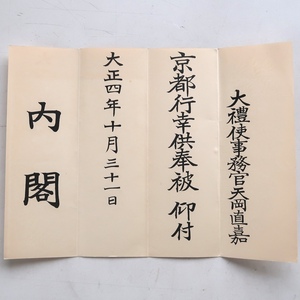 大禮使事務官天岡直嘉
京都行幸供奉被 仰付
大正四年十月三十一日
内閣